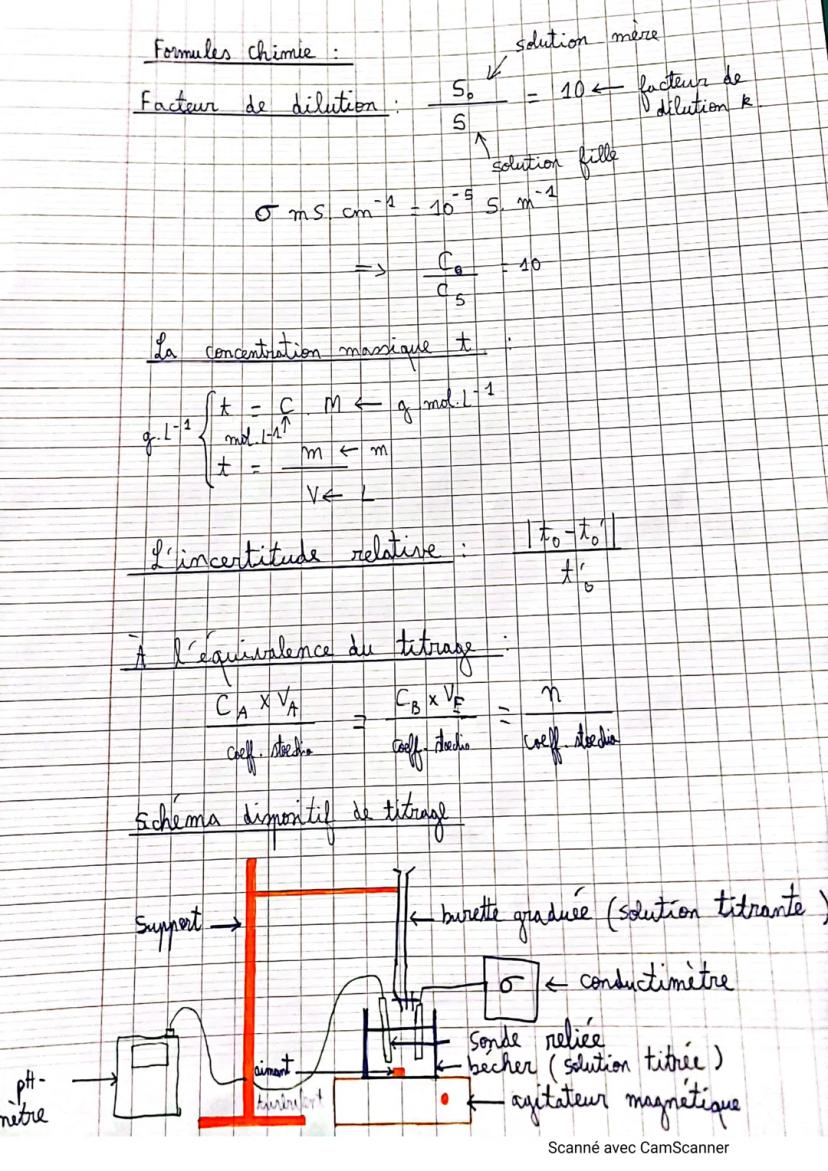 Formules chimie :
solution mère
Facteur de dilution : S₀ / S = 10 ← facteur de dilution k.
solution fille
σ mS. cm⁻¹ = 10⁻⁵ S. m⁻¹
=> C₀ / C_S = 10
La concentration massique t :
g.L⁻¹ { t = C . M ← g.mol.L⁻¹
mol.L⁻¹ ↑
t = m ← m / V ← L
L'incertitude relative : |t₀ - t₀'| / t'₀
À l'équivalence du titrage :
C_A × V_A / coeff. stoechio = C_B × V_E / coeff. stoechio = n / coeff. stoechio
Schéma dispositif de titrage
Support →
← burette graduée (solution titrante)
σ ← conductimètre
sonde reliée
aimant
bécher (solution titrée)
pH-mètre →
← agitateur magnétique
Scanné avec CamScanner